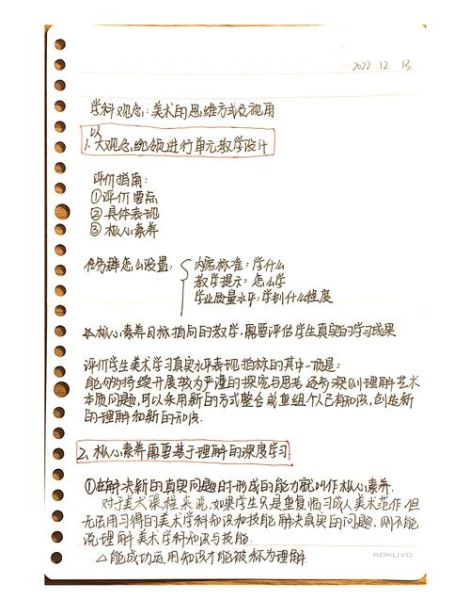 2022 12 13
学科观念：美术的思维方式及视角
以
1. 大观念统领进行单元教学设计
评价指南：
①评价要点
②具体表现
③核心素养
任务群怎么设置，内容标准：学什么
教学提示：怎么学
学业质量水平：学到什么程度
核心素养目标指向的教学，需要评估学生真实的学习成果
评价学生美术学习真实水平表现指标的其中一项是：
能够持续开展较为严谨的探究与思考 还与深刻理解艺术
本质问题，可以采用新的方式整合前重组个人已有知识，创造新
的理解和新的知识.
2. 核心素养需要基于理解的深度学习
①在解决新的真实问题时形成的能力就叫作核心素养.
对于美术课程来说，如果学生只是重复临习成人美术范作，但
无法用习得的美术学科知识和技能解决真实的问题，则不能
说理解美术学科知识与技能.
△能成功运用知识才能被称为理解.
KOKUYO